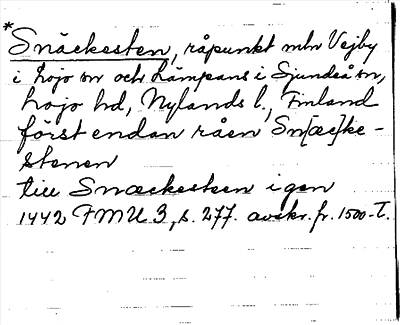 *Snäckesten, råpunkt mln Vejby
i Lojo sn och Lämpans i Sjundeå sn,
Lojo hd, Nylands l., Finland
först endan råen Sn[æc]ke-
stenen
till Snæckesteen igen
1442 FMU 3, s. 277. avskr. fr. 1500-t.